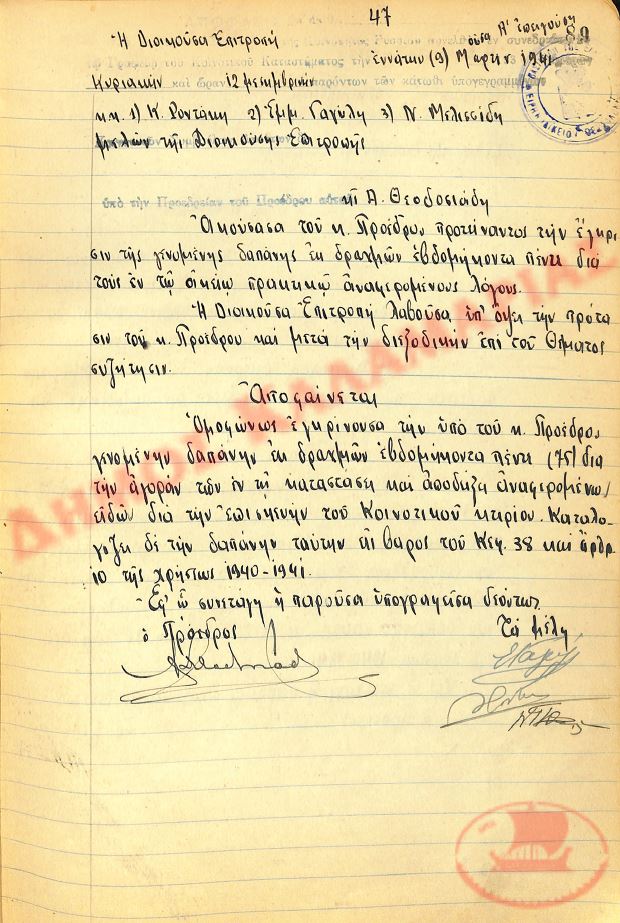 47
89
Ἡ Διοικοῦσα Ἐπιτροπὴ
Ἐννάτην (9) Μαρτίου 1941
Κυριακὴν καὶ ὥραν 12 μεσημβρινὴν παρόντων τῶν κάτωθι ὑπογεγραμμένων
κ.κ. 1) Κ. Ροντάκη 2) Ἐμμ. Γαγύλη 3) Ν. Μελισσίδη
μελῶν τῆς Διοικούσης Ἐπιτροπῆς
ὑπὸ τὴν Προεδρείαν τοῦ Προέδρου αὐτῆς Α. Θεοδοσιάδη
Ἀκούσασα τοῦ κ. Προέδρου προτείναντος τὴν ἔγκρι
σιν τῆς γενομένης δαπάνης ἐκ δραχμῶν ἑβδομήκοντα πέντε διὰ
τοὺς ἐν τῷ οἰκείῳ πρακτικῷ ἀναφερομένους λόγους.
Ἡ Διοικοῦσα Ἐπιτροπὴ λαβοῦσα ὑπ' ὄψει τὴν πρότα
σιν τοῦ κ. Προέδρου καὶ μετὰ τὴν διεξοδικὴν ἐπὶ τοῦ θέματος
συζήτησιν.
Ἀποφαίνεται
Ὁμοφώνως ἐγκρίνουσα τὴν ὑπὸ τοῦ κ. Προέδρου
γενομένην δαπάνην ἐκ δραχμῶν ἑβδομήκοντα πέντε (75) διὰ
τὴν ἀγορὰν τῶν ἐν τῇ καταστάσει καὶ ἀποδείξει ἀναφερομένων
εἰδῶν διὰ τὴν ἐπισκευὴν τοῦ Κοινοτικοῦ κτιρίου. Καταλο-
γίζει δὲ τὴν δαπάνην ταύτην εἰς βάρος τοῦ Κεφ. 38 καὶ ἄρθρ
10 τῆς χρήσεως 1940-1941.
Ἐφ' ᾧ συνετάγη ἡ παροῦσα ὑπογραφεῖσα δεόντως.
ὁ Πρόεδρος Τὰ μέλη
ΔΗΜΟΣ ΚΑΛΑΜΑΡΙΑΣ